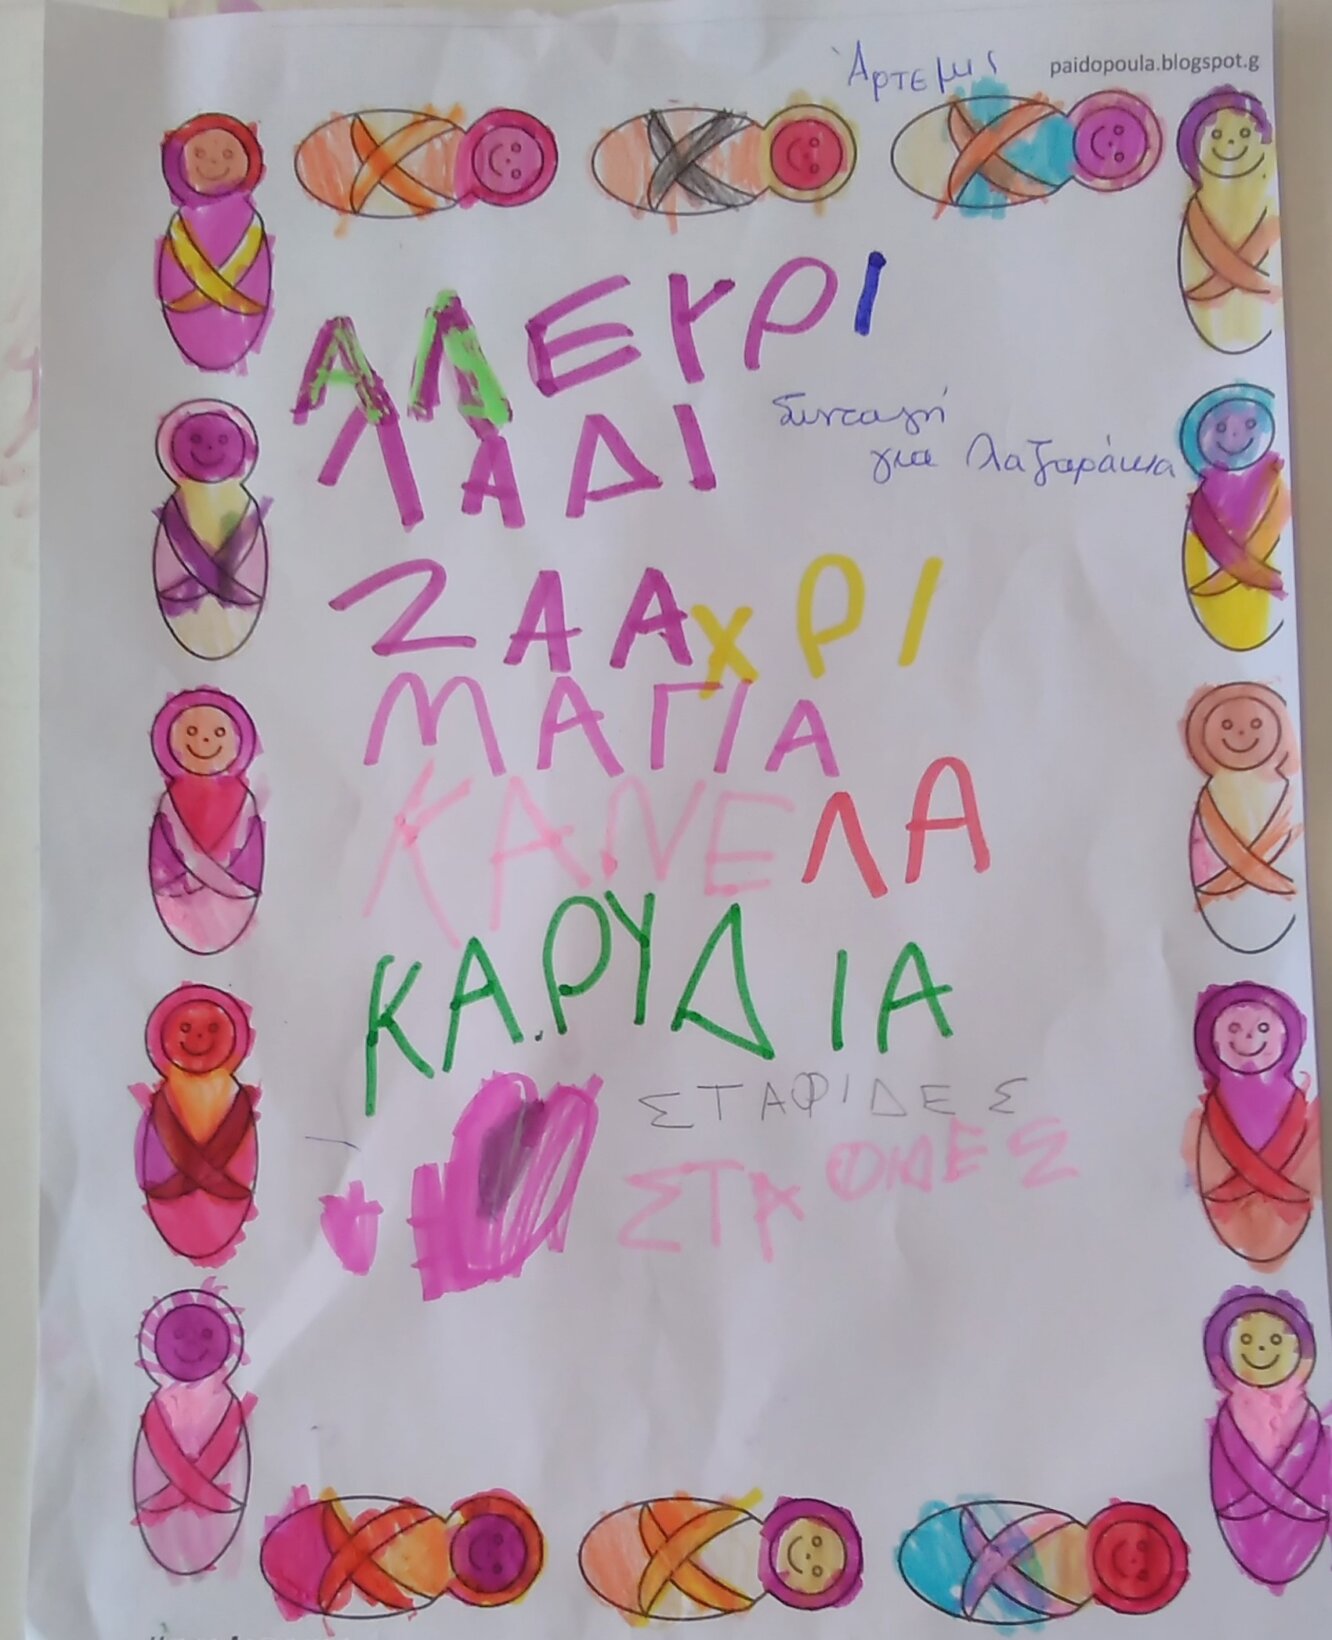 Άρτεμις
paidopoula.blogspot.g
ΑΛΕΥΡΙ
ΛΑΔΙ
Συνταγή
για λαζαράκια
ΖΑΑΧΡΙ
ΜΑΓΙΑ
ΚΑΝΕΛΑ
ΚΑΡΥΔΙΑ
ΣΤΑΦΙΔΕΣ